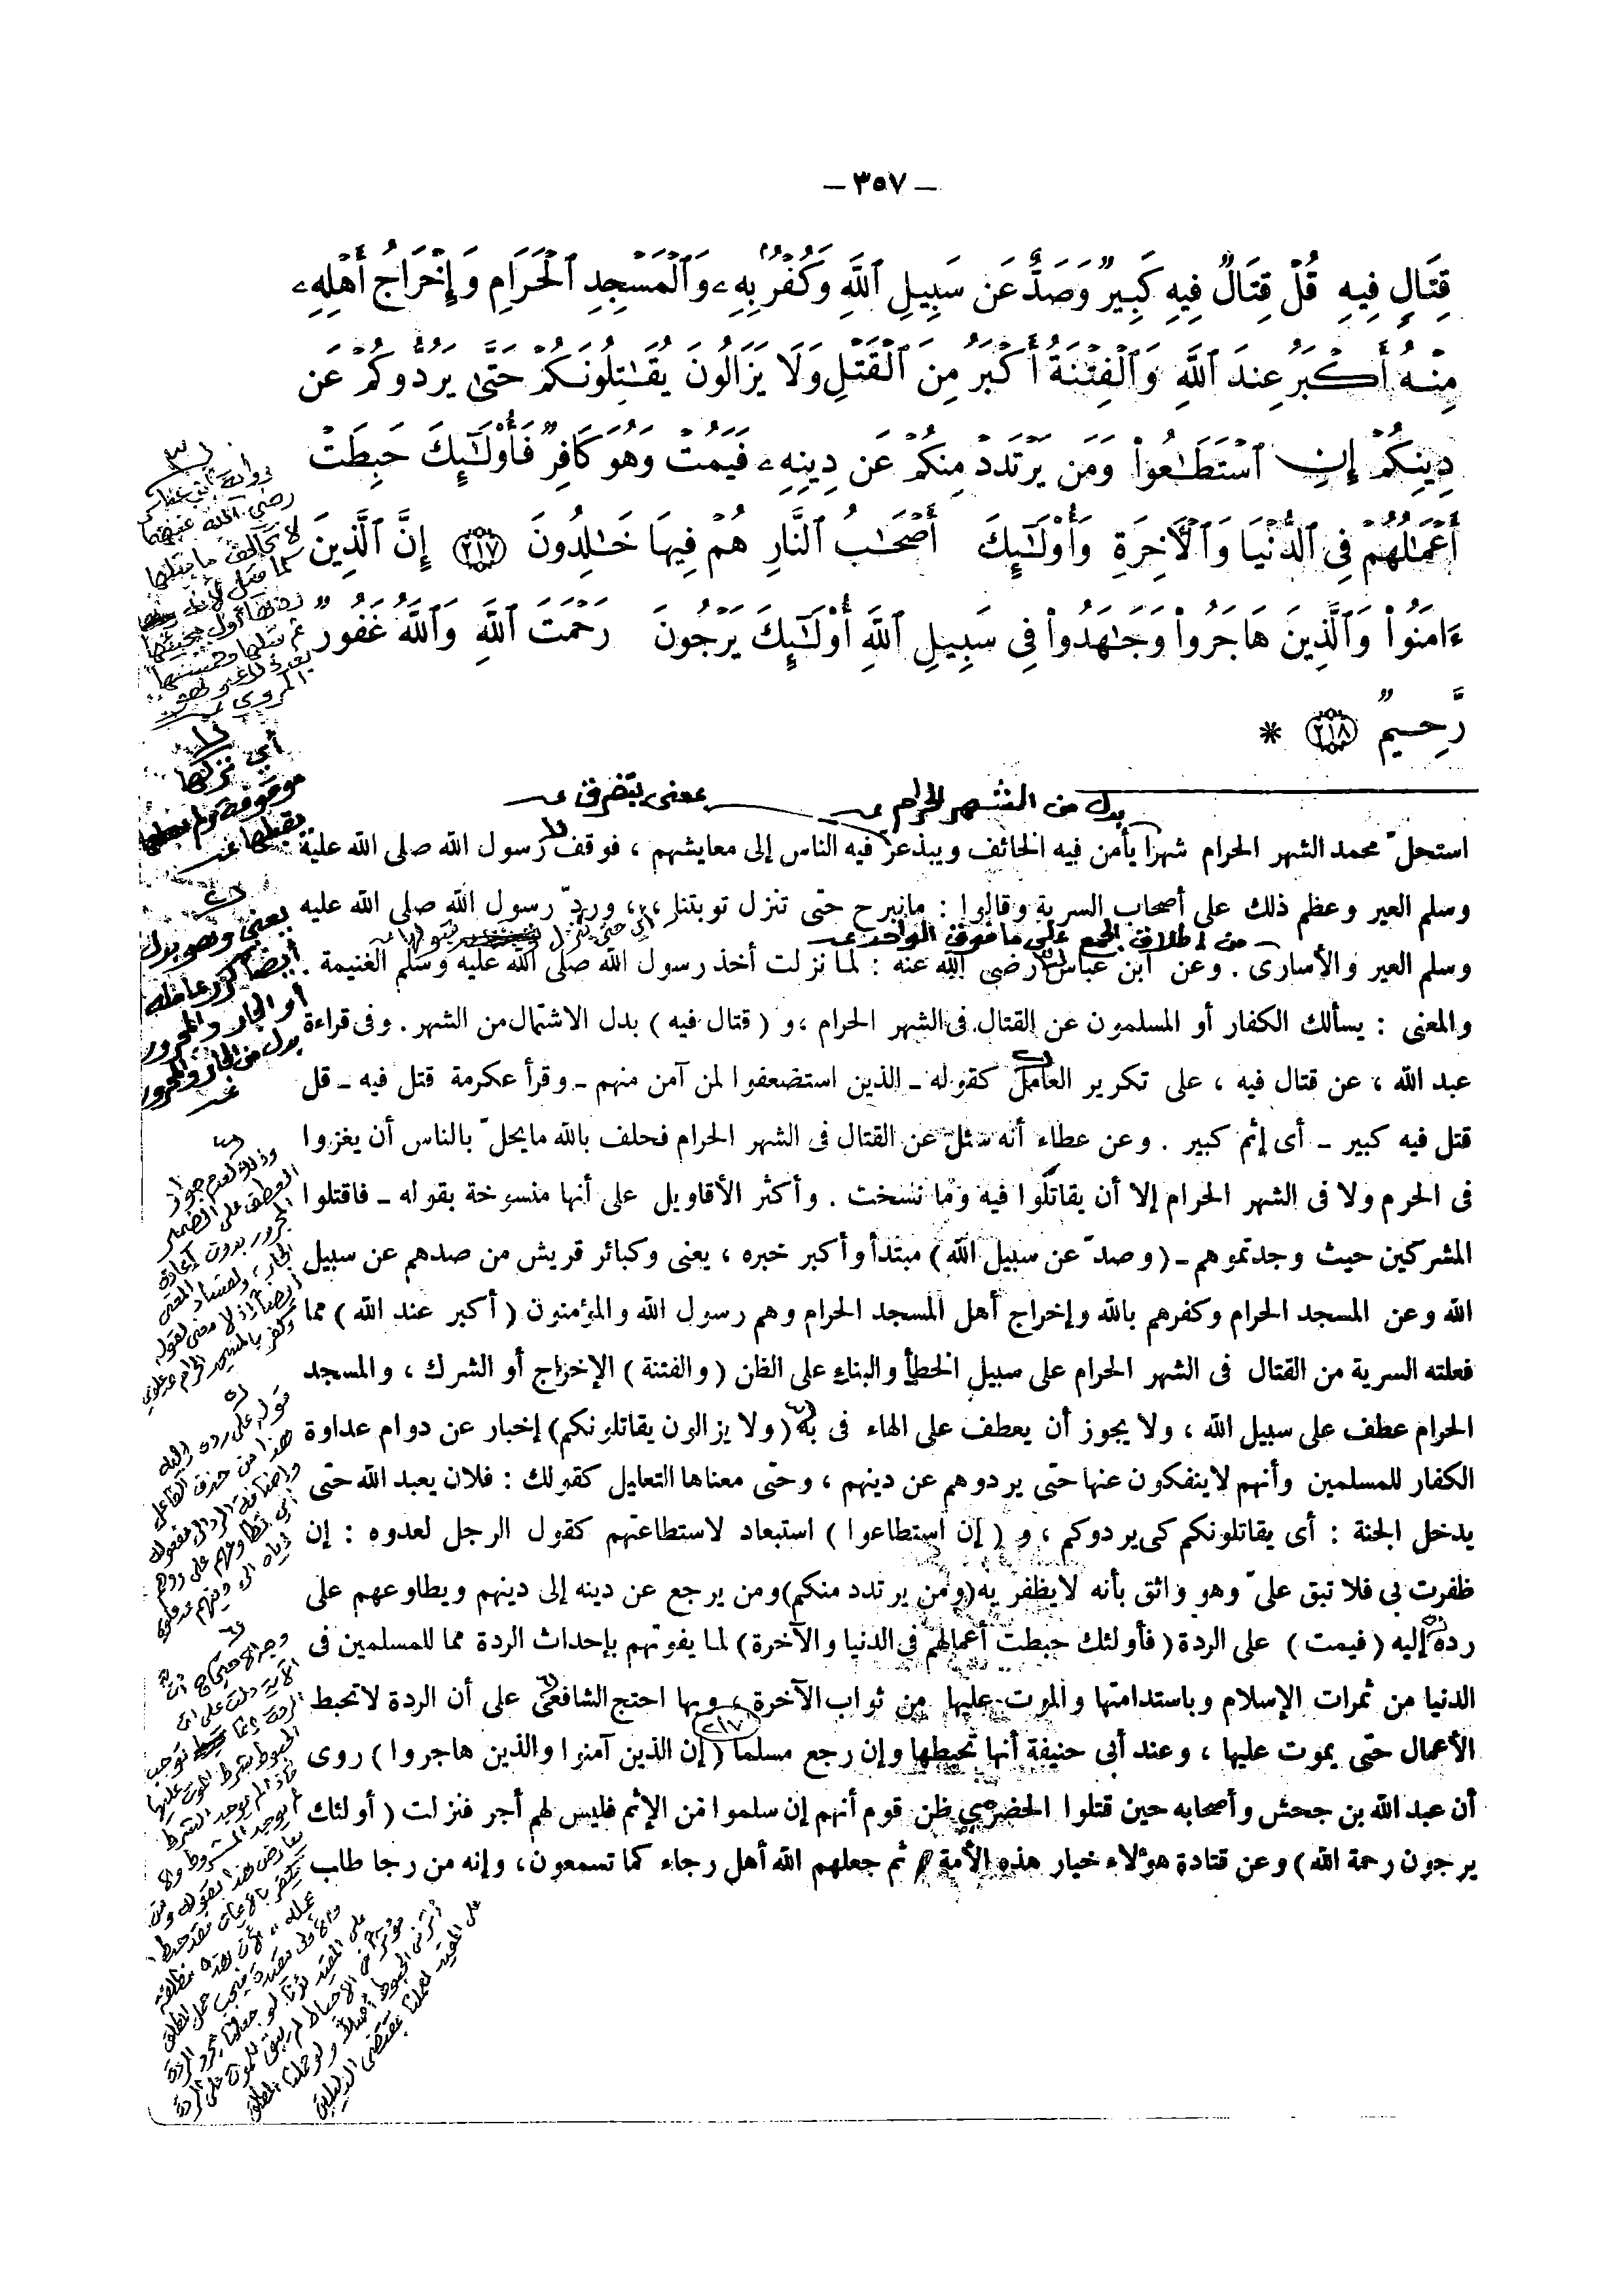 — ٣٥٧ —
قِتَالٍ فِيهِ قُلْ قِتَالٌ فِيهِ كَبِيرٌ وَصَدٌّ عَن سَبِيلِ ٱللَّهِ وَكُفْرٌ بِهِۦ وَٱلْمَسْجِدِ ٱلْحَرَامِ وَإِخْرَاجُ أَهْلِهِۦ
مِنْهُ أَكْبَرُ عِندَ ٱللَّهِ وَٱلْفِتْنَةُ أَكْبَرُ مِنَ ٱلْقَتْلِ وَلَا يَزَالُونَ يُقَٰتِلُونَكُمْ حَتَّىٰ يَرُدُّوكُمْ عَن
دِينِكُمْ إِنِ ٱسْتَطَٰعُوا۟ وَمَن يَرْتَدِدْ مِنكُمْ عَن دِينِهِۦ فَيَمُتْ وَهُوَ كَافِرٌ فَأُو۟لَٰٓئِكَ حَبِطَتْ
أَعْمَٰلُهُمْ فِى ٱلدُّنْيَا وَٱلْأَخِرَةِ وَأُو۟لَٰٓئِكَ أَصْحَٰبُ ٱلنَّارِ هُمْ فِيهَا خَٰلِدُونَ ٢١٧ إِنَّ ٱلَّذِينَ
ءَامَنُوا۟ وَٱلَّذِينَ هَاجَرُوا۟ وَجَٰهَدُوا۟ فِى سَبِيلِ ٱللَّهِ أُو۟لَٰٓئِكَ يَرْجُونَ رَحْمَتَ ٱللَّهِ وَٱللَّهُ غَفُورٌ
رَّحِيمٌ ٢١٨ *
بدل من الشهر الحرام بمعنى يتفرق
استحلّ محمد الشهر الحرام شهرا يأمن فيه الخائف ويبذعرّ فيه الناس إلى معايشهم ، فوقف رسول الله صلى الله عليه
وسلم العير وعظم ذلك على أصحاب السرية وقالوا : مانبرح حتى تنزل توبتنا ، وردّ رسول الله صلى الله عليه
من إطلاق الجمع على ما فوق الواحد
وسلم العير والأسارى . وعن ابن عباس رضى الله عنه : لما نزلت أخذ رسول الله صلى الله عليه وسلم الغنيمة .
والمعنى : يسألك الكفار أو المسلمون عن القتال فى الشهر الحرام ، و ( قتال فيه ) بدل الاشتمال من الشهر . وفى قراءة
عبد الله ، عن قتال فيه ، على تكرير العامل كقوله ـ الذين استضعفوا لمن آمن منهم ـ وقرأ عكرمة قتل فيه ـ قل
قتل فيه كبير ـ أى إثم كبير . وعن عطاء أنه سئل عن القتال فى الشهر الحرام فحلف بالله مايحلّ بالناس أن يغزوا
فى الحرم ولا فى الشهر الحرام إلا أن يقاتلوا فيه وما نسخت . وأكثر الأقاويل على أنها منسوخة بقوله ـ فاقتلوا
المشركين حيث وجدتموهم ـ ( وصدّ عن سبيل الله ) مبتدأ وأكبر خبره ، يعنى وكبائر قريش من صدهم عن سبيل
الله وعن المسجد الحرام وكفرهم بالله وإخراج أهل المسجد الحرام وهم رسول الله والمؤمنون ( أكبر عند الله ) مما
فعلته السرية من القتال فى الشهر الحرام على سبيل الخطأ والبناء على الظن ( والفتنة ) الإخراج أو الشرك ، والمسجد
الحرام عطف على سبيل الله ، ولا يجوز أن يعطف على الهاء فى به ( ولا يزالون يقاتلونكم ) إخبار عن دوام عداوة
الكفار للمسلمين وأنهم لاينفكون عنها حتى يردوهم عن دينهم ، وحتى معناها التعليل كقولك : فلان يعبد الله حتى
يدخل الجنة : أى يقاتلونكم كى يردوكم ، و ( إن استطاعوا ) استبعاد لاستطاعتهم كقول الرجل لعدوه : إن
ظفرت بى فلا تبق علىّ وهو واثق بأنه لايظفر به ( ومن يرتدد منكم ) ومن يرجع عن دينه إلى دينهم ويطاوعهم على
رده إليه ( فيمت ) على الردة ( فأولئك حبطت أعمالهم فى الدنيا والآخرة ) لما يفوتهم بإحداث الردة مما للمسلمين فى
الدنيا من ثمرات الإسلام وباستدامتها والموت عليها من ثواب الآخرة ، وبها احتج الشافعى على أن الردة لاتحبط
الأعمال حتى يموت عليها ، وعند أبى حنيفة أنها تحبطها وإن رجع مسلما ( إن الذين آمنوا والذين هاجروا ) روى
أن عبد الله بن جحش وأصحابه حين قتلوا الحضرمى ظن قوم أنهم إن سلموا من الإثم فليس لهم أجر فنزلت ( أولئك
يرجون رحمة الله ) وعن قتادة هؤلاء خيار هذه الأمة ثم جعلهم الله أهل رجاء كما تسمعون ، وإنه من رجا طلب
رواية ابن عباس
رضى الله عنهما
لا تخالف ما قبلها
أي نزلها
موقوفة
يعني وهو بدل
أيضا كرر عامله
أو الجار والمجرور
بدل من الجار والمجرور
وذلك لعدم جواز
العطف على الضمير
المجرور بدون إعادة
الجار ولفساد المعنى
أيضا إذ لا معنى لقوله
وكفر بالمسجد الحرام
قوله على رده إليه
هذا من حذف الفاعل
وإضافة الرد إلى مفعوله